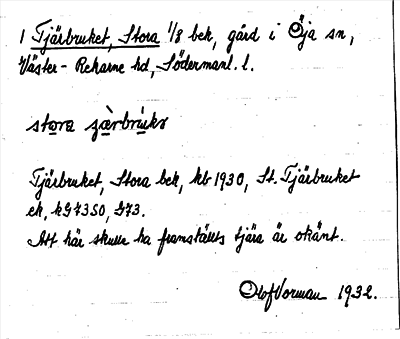 1 Tjärbruket, Stora 1/8 bek, gård i Öja sn,
Väster-Rekarne hd, Södermanl. l.
stora
Tjärbruket, Stora bek, kb 1930, St. Tjärbruket
ek, kG 7350, G73.
Att här skulle ha framställts tjära är okänt.
Olof Vorman 1932.